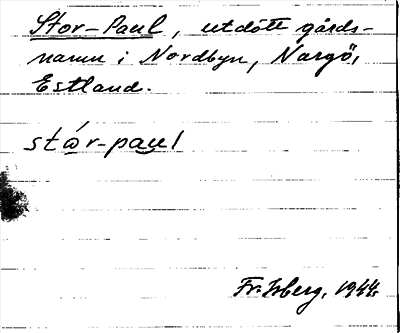 Stor-Paul, utdött gårds-
namn i Nordbyn, Nargö,
Estland.
stǿr-paul
Fr. Isberg, 1944.